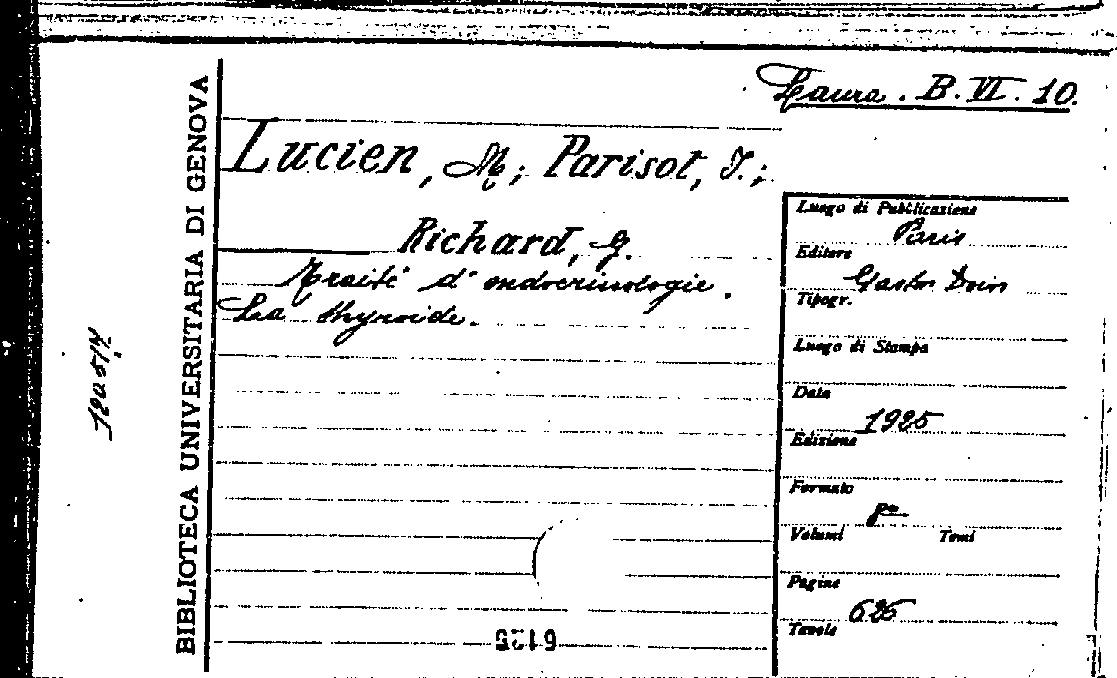 Laura. B. VI. 10.
Lucien, M; Parisot, J.;
Richard, G.
Traité d'endocrinologie.
La thyroide.
BIBLIOTECA UNIVERSITARIA DI GENOVA
Luogo di Pubblicazione
Paris
Editore
Gaston Doin
Tipogr.
Luogo di Stampa
Data
1925
Edizione
Formato
8°
Volumi Tomi
Pagine
626
Tavole
6125